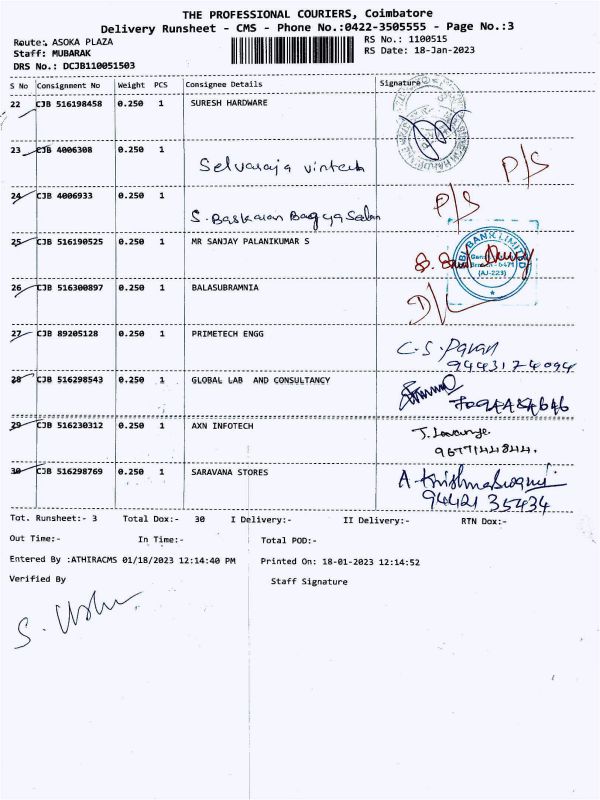 THE PROFESSIONAL COURIERS, Coimbatore
Delivery Runsheet - CMS - Phone No.:0422-3505555 - Page No.:3
Route: ASOKA PLAZA
RS No.: 1100515
Staff: MUBARAK
RS Date: 18-Jan-2023
DRS No.: DCJB110051503
S No Consignment No Weight PCS Consignee Details Signature
22 CJB 516198458 0.250 1 SURESH HARDWARE
23 CJB 4006308 0.250 1
Selvaraja P/S
24 CJB 4006933 0.250 1
S. Baskaran P/S
25 CJB 516190525 0.250 1 MR SANJAY PALANIKUMAR S
BANK LIMITED
(AJ-223)
26 CJB 516300897 0.250 1 BALASUBRAMNIA
27 CJB 89205128 0.250 1 PRIMETECH ENGG C.S. Pavan
9443174094
28 CJB 516298543 0.250 1 GLOBAL LAB AND CONSULTANCY
29 CJB 516230312 0.250 1 AXN INFOTECH
9677144844.
30 CJB 516298769 0.250 1 SARAVANA STORES A. Krishnaswami
9442135434
Tot. Runsheet:- 3 Total Dox:- 30 I Delivery:- II Delivery:- RTN Dox:-
Out Time:- In Time:- Total POD:-
Entered By :ATHIRACMS 01/18/2023 12:14:40 PM Printed On: 18-01-2023 12:14:52
Verified By Staff Signature